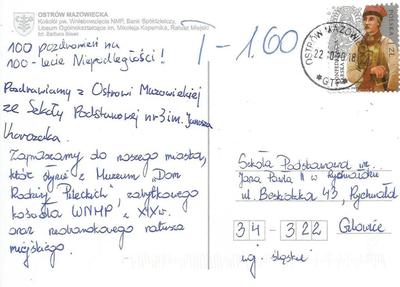 OSTRÓW MAZOWIECKA
Kościół pw. Wniebowzięcia NMP, Bank Spółdzielczy,
Liceum Ogólnokształcące im. Mikołaja Kopernika, Ratusz Miejski
fot. Barbara
100 pozdrowień na
100-lecie Niepodległości!
Pozdrawiamy z Ostrowi Mazowieckiej
ze Szkoły Podstawowej nr 3 im. Janusza
Korczaka.
Zapraszamy do naszego miasta,
które słynie z Muzeum "Dom
Rodziny Pileckich", zabytkowego
kościoła WNMP z XIXw.
oraz neobarokowego ratusza
miejskiego.
1-100
OSTRÓW MAZOW
22
18
GT
Szkoła Podstawowa
Jana Pawła II w Rychwałdzie
ul. Beskidzka 43, Rychwałd
34-322 Gilowice
woj. śląskie